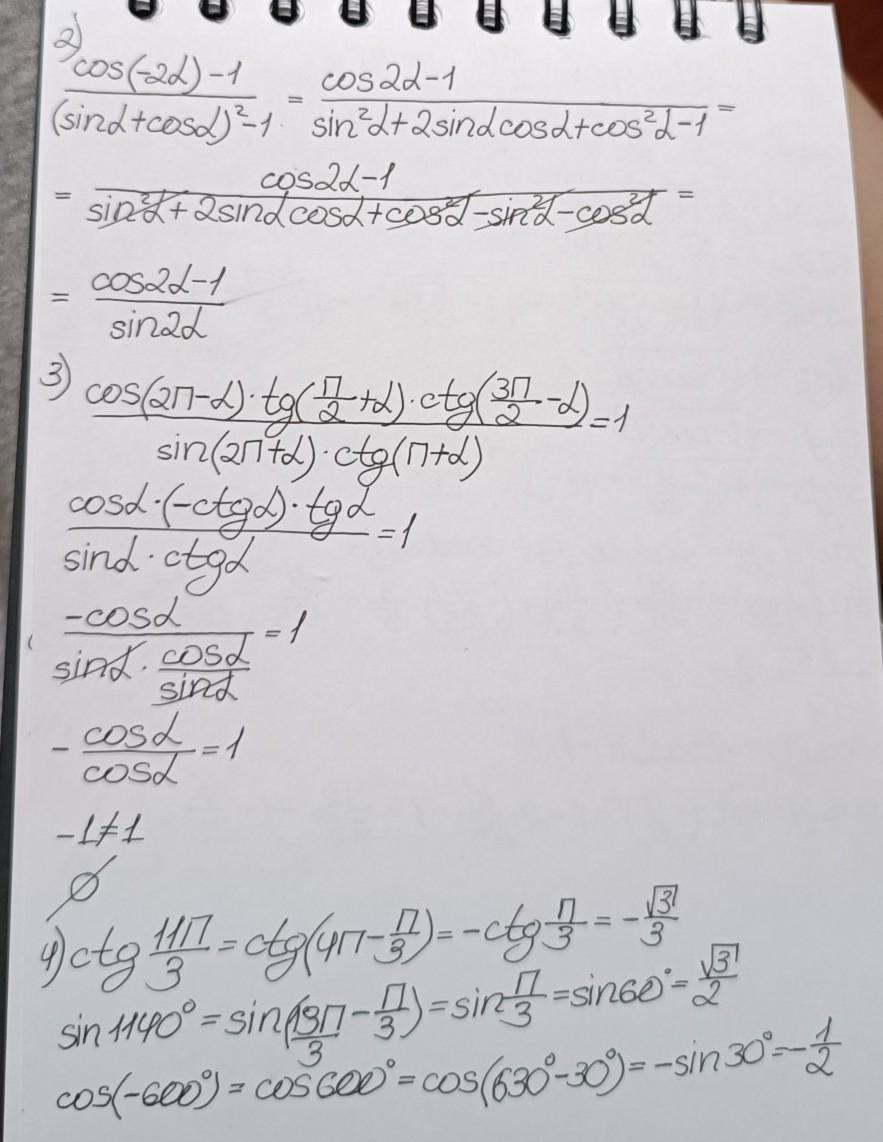 2)
(cos(-2α) - 1)/((sinα + cosα)² - 1) = (cos2α - 1)/(sin²α + 2sinαcosα + cos²α - 1) =
= (cos2α - 1)/(sin²α + 2sinαcosα + cos²α - sin²α - cos²α) =
= (cos2α - 1)/(sin2α)
3) (cos(2π - α) · tg(π/2 + α) · ctg(3π/2 - α))/(sin(2π + α) · ctg(π + α)) = 1
(cosα · (-ctgα) · tgα)/(sinα · ctgα) = 1
(-cosα)/(sinα · cosα/sinα) = 1
- cosα/cosα = 1
-1 ≠ 1
∅
4) ctg 11π/3 = ctg(4π - π/3) = -ctg π/3 = -√3/3
sin1140° = sin(19π/3 - π/3) = sin π/3 = sin60° = √3/2
cos(-600°) = cos600° = cos(630° - 30°) = -sin30° = -1/2